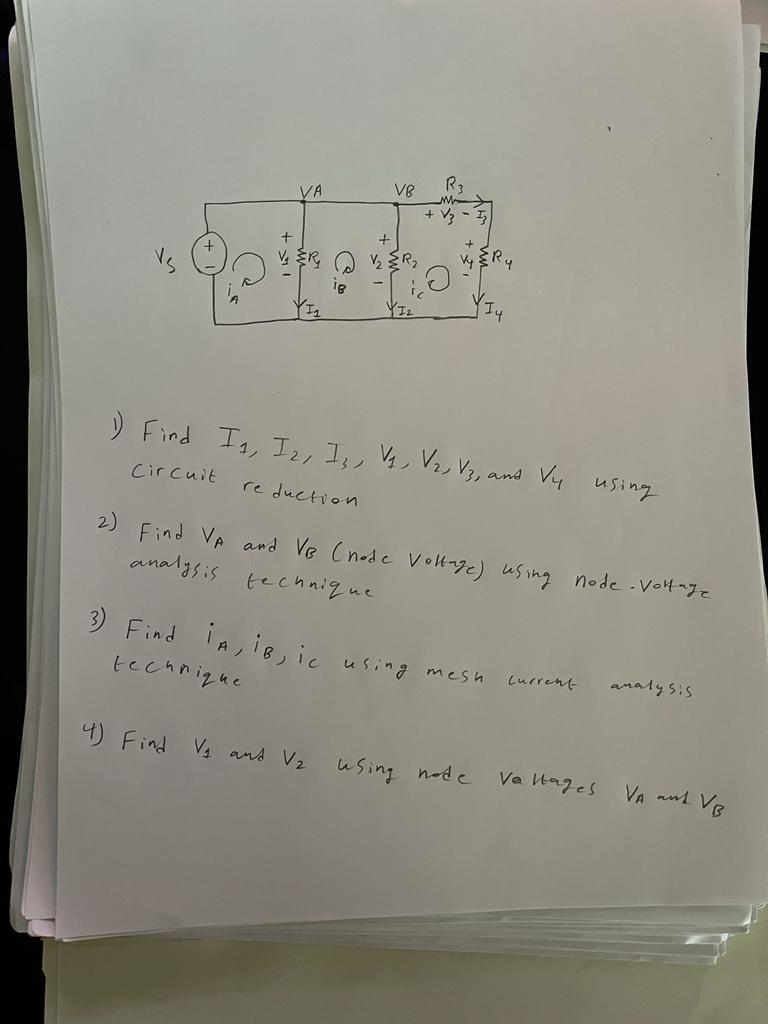 VA VB R3
+ V3 - I3
VS + - iA + V1 - R1 iB + V2 - R2 iC + V4 - R4
I1 I2 I4
1) Find I1, I2, I3, V1, V2, V3, and V4 using
circuit reduction
2) Find VA and VB (node voltage) using node-voltage
analysis technique
3) Find iA, iB, ic using mesh current analysis
technique
4) Find V1 and V2 using node voltages VA and VB